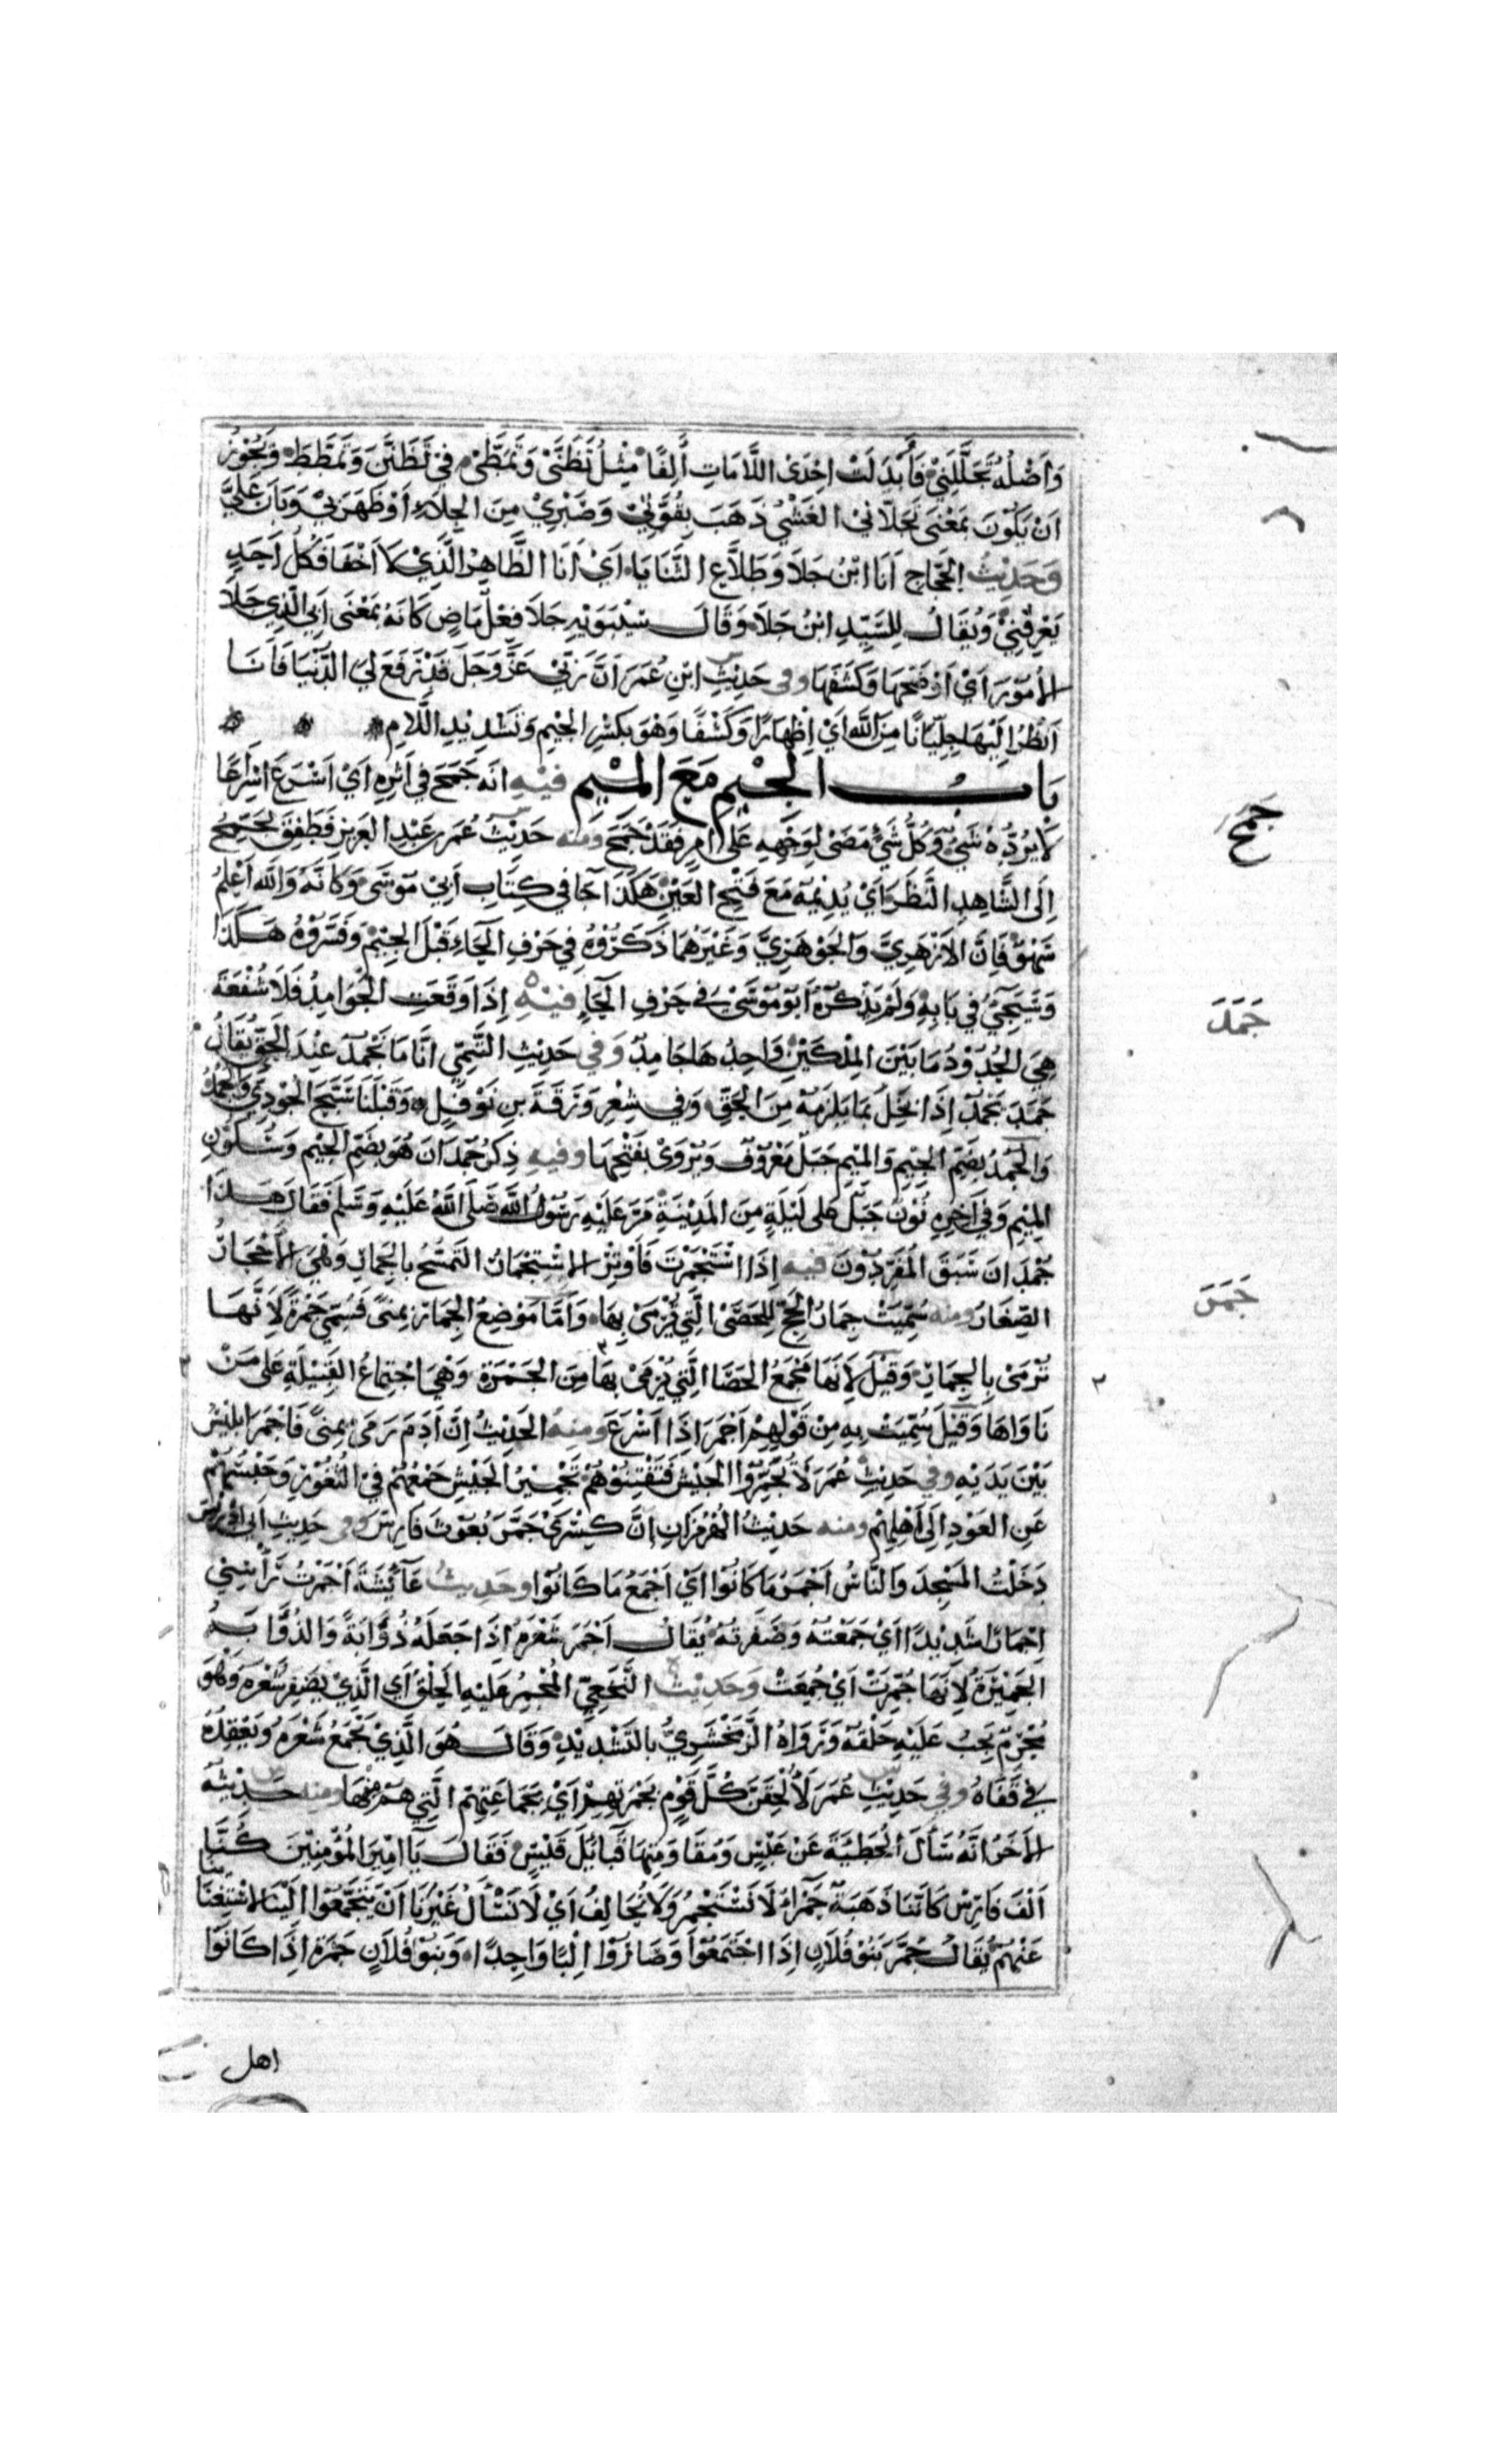 وَاَصْلُهُ تَجَلَّلَنِيْ فَأُبْدَلَتْ اِحْدَى اللَّامَاتِ أَلِفًا مِثْلُ تَظَنَّى وَتَمَطَّى فِي تَظَنَّنَ وَتَمَطَّطَ وَيَجُوْزُ
اَنْ يَكُوْنَ بِمَعْنَى تَجَلَّانِي الغَشْيُ ذَهَبَ بِقُوَّتِيْ وَصَبْرِيْ مِنَ الجِلَاءِ اَوْ ظَهَرَ بِيْ وَبَانَ عَلَيَّ
وَحَدِيْثُ الحَجَّاجِ اَنَا ابْنُ جَلَا وَطَلَّاعِ الثَّنَايَا اَيْ اَنَا الظَّاهِرُ الَّذِيْ لَا اَخْفَا فَكُلُّ اَحَدٍ
يَعْرِفُنِيْ وَيُقَالُ لِلسَّيِّدِ ابْنُ جَلَا وَقَالَ سِيْبَوَيْهِ جَلَا فِعْلٌ مَاضٍ كَانَهُ بِمَعْنَى اَبِي الَّذِي جَلَا
الأُمُوْرَ اَيْ اَوْضَحَهَا وَكَشَفَهَا وفى حَدِيْثِ ابْنِ عُمَرَ اَنَّ رَبِّيْ عَزَّ وَجَلَّ قَدْ رَفَعَ لِيَ الدُّنْيَا فَاَنَا
اَنْظُرُ اِلَيْهَا جِلِّيَانًا مِنَ اللَّهِ اَيْ اِظْهَارًا وَكَشْفًا وَهُوَ بِكَسْرِ الجِيْمِ وَتَشْدِيْدِ اللَّامِ
بَابُ الجِيْمِ مَعَ المِيْمِ فِيْهِ انَه جَمَحَ فِي اَثَرِهِ اَيْ اَسْرَعَ اِسْرَاعًا
لَا يَرُدُّهُ شَيْءٌ وَكُلُّ شَيْءٍ مَضَى لِوَجْهِهِ عَلَى اَمْرٍ فَقَدْ جَمَحَ وَمنه حَدِيْثُ عُمَرَ بنِ عَبْدِ العَزِيْزِ فَطَفِقَ يُجَمِّحُ
اِلَى الشَّاهِدِ النَّظَرَ اَيْ يُدِيْمُهُ مَعَ فَتْحِ العَيْنِ هَكَذَا جَا فِي كِتَابِ اَبِيْ مُوْسَى وَكَانَهُ وَاللهُ اَعْلَمُ
سَهْوٌ فَاِنَّ الاَزْهَرِيَّ وَالجَوْهَرِيَّ وَغَيْرَهُمَا ذَكَرُوْهُ فِي حَرْفِ الحَاءِ قَبْلَ الجِيْمِ وَفَسَّرُوْهُ هَكَذَا
وَسَيَجِيْءُ فِي بَابِهِ وَلَمْ يَذْكُرْهُ اَبُوْ مُوْسَى فِي حَرْفِ الحَاءِ فِيْهِ اِذَا وَقَعَتِ الجَوَامِدُ فَلَا شُفْعَةَ
هِيَ الحُدُوْدُ مَا بَيْنَ المِلْكَيْنِ وَاحِدُهَا جَامِدٌ وَفي حَدِيْثِ التَّيْمِي انَّا مَا نَجْمُدُ عِنْدَ الحَقِّ يُقَالُ
جَمَدَ يَجْمُدُ اِذَا بَخِلَ بِمَا يَلْزَمُهُ مِنَ الحَقِّ وَفي شِعْرِ وَرَقَةَ بنِ نَوْفَلٍ وَقَبْلَنَا سَبَّحَ الجُوْدِيُّ وَالجُمُدُ
وَالجُمُدُ بِضَمِّ الجِيْمِ وَالمِيْمِ جَبَلٌ مَعْرُوْفٌ وَيُرْوَى بِفَتْحِهَا وفيهِ ذِكْرُ جُمْدَانَ هُوَ بِضَمِّ الجِيْمِ وَسُكُوْنِ
المِيْمِ وَفِي اَخِرِهِ نُوْنٌ جَبَلٌ عَلَى لَيْلَةٍ مِنَ المَدِيْنَةِ مَرَّ عَلَيْهِ رَسُوْلُ اللَّهِ صَلَّى اللَّهُ عَلَيْهِ وَسَلَّمَ فَقَالَ هَذَا
جُمْدَانُ سَبَقَ المُفَرِّدُوْنَ فيه اِذَا اسْتَجْمَرْتَ فَاَوْتِرْ الاسْتِجْمَارُ التَّمَسُّحُ بِالجِمَارِ وَهْيَ الأَحْجَارُ
الصِّغَارُ ومنه سُمِّيَتْ جِمَارُ الحَجِّ لِلحَصَى الَّتِي يُرْمَى بِهَا وَاَمَّا مَوْضِعُ الجِمَارِ بِمِنًى فَسُمِّيَ جَمْرَةً لِاَنَّهَا
تُرْمَى بِالجِمَارِ وَقِيْلَ لِاَنَهَا مَجْمَعُ الحَصَا الَّتِي يُرْمَى بِهَا مِنَ الجَمْرَةِ وَهْيَ اجْتِمَاعُ القَبِيْلَةِ عَلَى مَنْ
نَاوَاهَا وَقِيْلَ سُمِّيَتْ بِهِ مِنْ قَوْلِهِمْ اَجْمَرَ اِذَا اَسْرَعَ ومنهُ الحَدِيْثُ اِنَّ اَدَمَ رَمَى بِمِنًى فَاَجْمَرَ ابْلِيْسُ
بَيْنَ يَدَيْهِ وفي حَدِيْثِ عُمَرَ لَا تُجَمِّرُوا الجَيْشَ فَتَفْتِنُوْهُمْ تَجْمِيْرُ الجَيْشِ جَمْعُهُمْ فِي الثُّغُوْرِ وَحَبْسُهُمْ
عَنِ العَوْدِ اِلَى اَهْلِهِمْ ومنه حَدِيْثُ الهُرْمُزَانِ اِنَّ كِسْرَى جَمَّرَ بُعُوْثَ فَارِسَ وفى حَدِيْثِ اَبِي اِدْرِيْسَ
دَخَلْتُ المَسْجِدَ وَالنَّاسُ اَجْمَرُ مَا كَانُوْا اَيْ اَجْمَعُ مَا كَانُوْا وحَدِيثُ عَائِشَةَ اَجْمَرْتُ رَاْسِي
اِجْمَارًا شَدِيْدًا اَيْ جَمَعْتُهُ وَضَفَرْتُهُ يُقَالُ اَجْمَرَ شَعْرَهُ اِذَا جَعَلَهُ ذُؤَابَةً وَالذُّوَابَةُ
الجَمِيْرَةُ لِاَنَهَا جُمِّرَتْ اَيْ جُمِعَتْ وَحَدِيْثُ النَّخَعِيّ المُجْمِرُ عَلَيْهِ الحَلْقُ اَي الَّذِيْ يَضْفِرُ شَعْرَهُ وَهُوَ
مُحْرِمٌ يَجِبُ عَلَيْهِ حَلْقُهُ وَرَوَاهُ الزَّمَخْشَرِيُّ بِالتَّشْدِيْدِ وَقَالَ هُوَ الَّذِيْ يَجْمَعُ شَعْرَهُ وَيَعْقِدُهُ
فِي قَفَاهُ وفي حَدِيْثِ عُمَرَ لَأُلْحِقَنَّ كُلَّ قَوْمٍ بِجَمْرَتِهِمْ اَيْ بِجَمَاعَتِهِمْ الَّتِي هُمْ مِنْهَا ومنه حَدِيْثُهُ
الأَخَرُ انَّهُ سَأَلَ الحُطَيْئَةَ عَنْ عَبْسٍ وَمُقَاوَمَتِهَا قَبَائِلَ قَيْسٍ فَقَالَ يَا اَمِيْرَ المُؤْمِنِيْنَ كُنَّا
اَلْفَ فَارِسٍ كَاَنَّنَا ذَهَبَةٌ حَمْرَاءُ لَا نَسْتَجْمِرُ وَلَا نُحَالِفُ اَيْ لَا نَسْأَلُ غَيْرَنَا اَنْ يَتَجَمَّعُوْا اِلَيْنَا لِاسْتِغْنَائِنَا
عَنْهُمْ يُقَالُ جَمَّرَ بَنُوْ فُلَانٍ اِذَا اجْتَمَعُوْا وَصَارُوْا اِلْبًا وَاحِدًا وَبَنُوْ فُلَانٍ جَمْرَةٌ اِذَا كَانُوْا
اهل
جَمَحَ
جَمَدَ
جَمَرَ